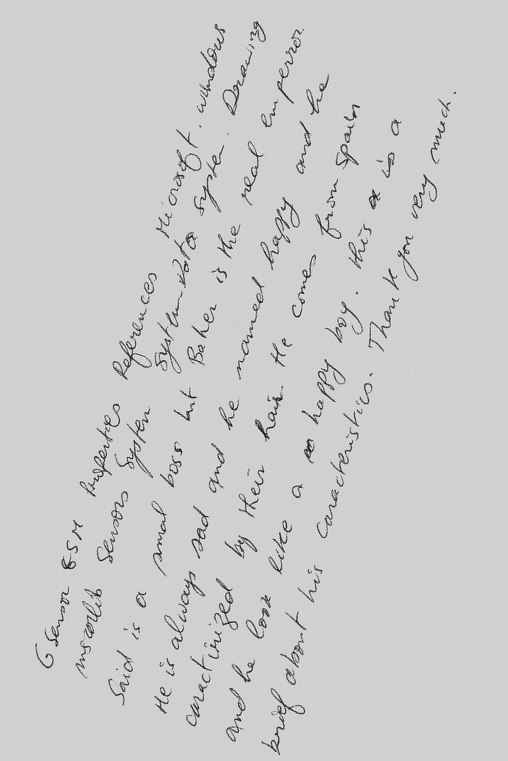 G sensor GSM Properties References Microsoft. windows
mscorlib Sensors System System.Data System. Drawing
Said is a smal boss but Baher is the real emperror.
He is always sad and he named happy and he
caractirized by their hair. He comes from Spain
and he look like a happy boy. this is a
brief about his caracteristics. Thank you very much.